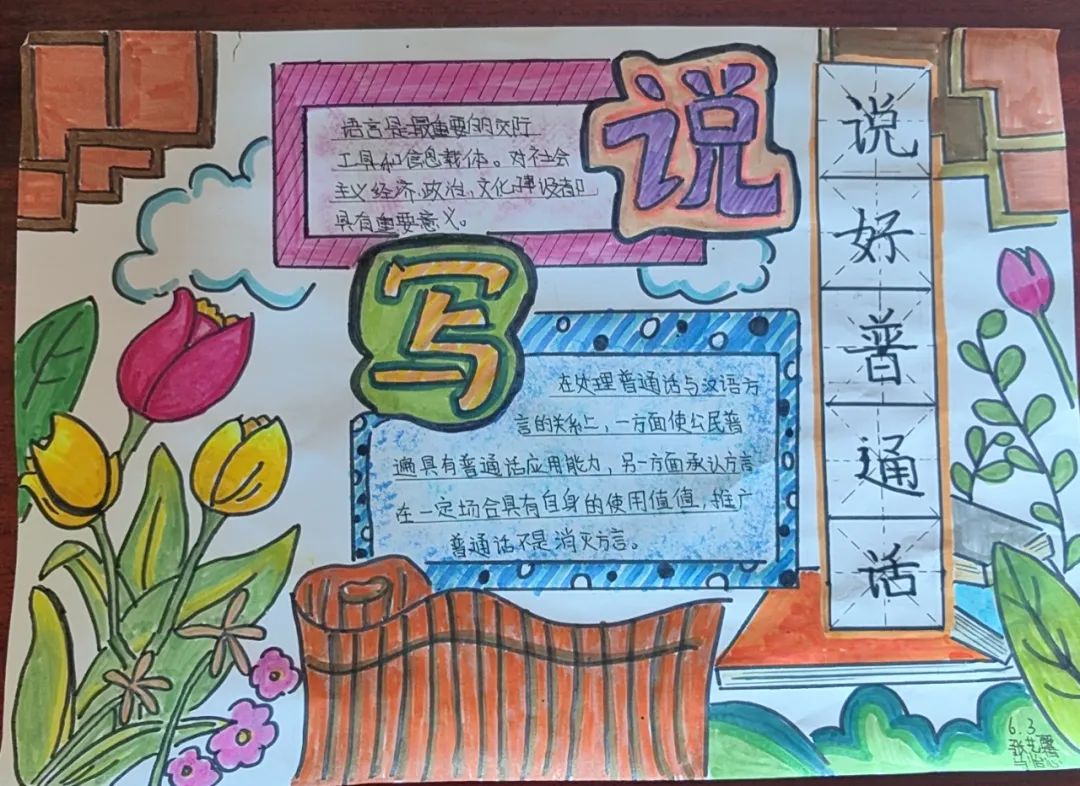 语言是最重要的交际
工具和信息载体。对社会
主义经济、政治、文化建设都
具有重要意义。
说
写
在处理普通话与汉语方
言的关系上，一方面使公民普
遍具有普通话应用能力，另一方面承认方言
在一定场合具有自身的使用值值，推广
普通话不是消灭方言。
说
好
普
通
话
6.3